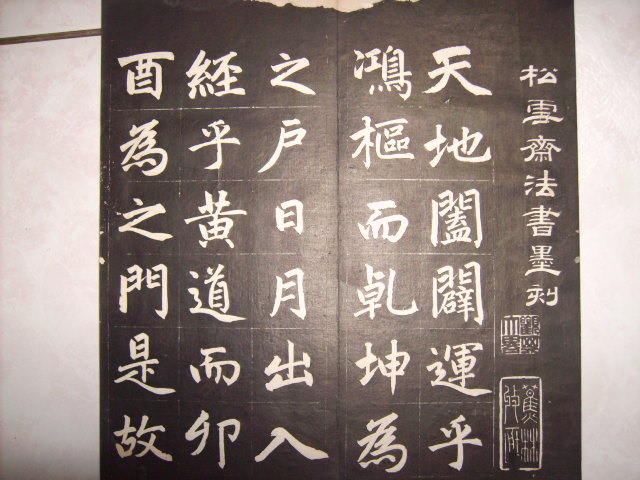 松雲齋法書墨刻
天地闔闢運乎
鴻樞而乹坤為
之户日月出入
經乎黄道而卯
酉為之門是故